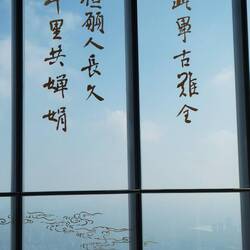 此事古難全
但願人長久
千里共嬋娟